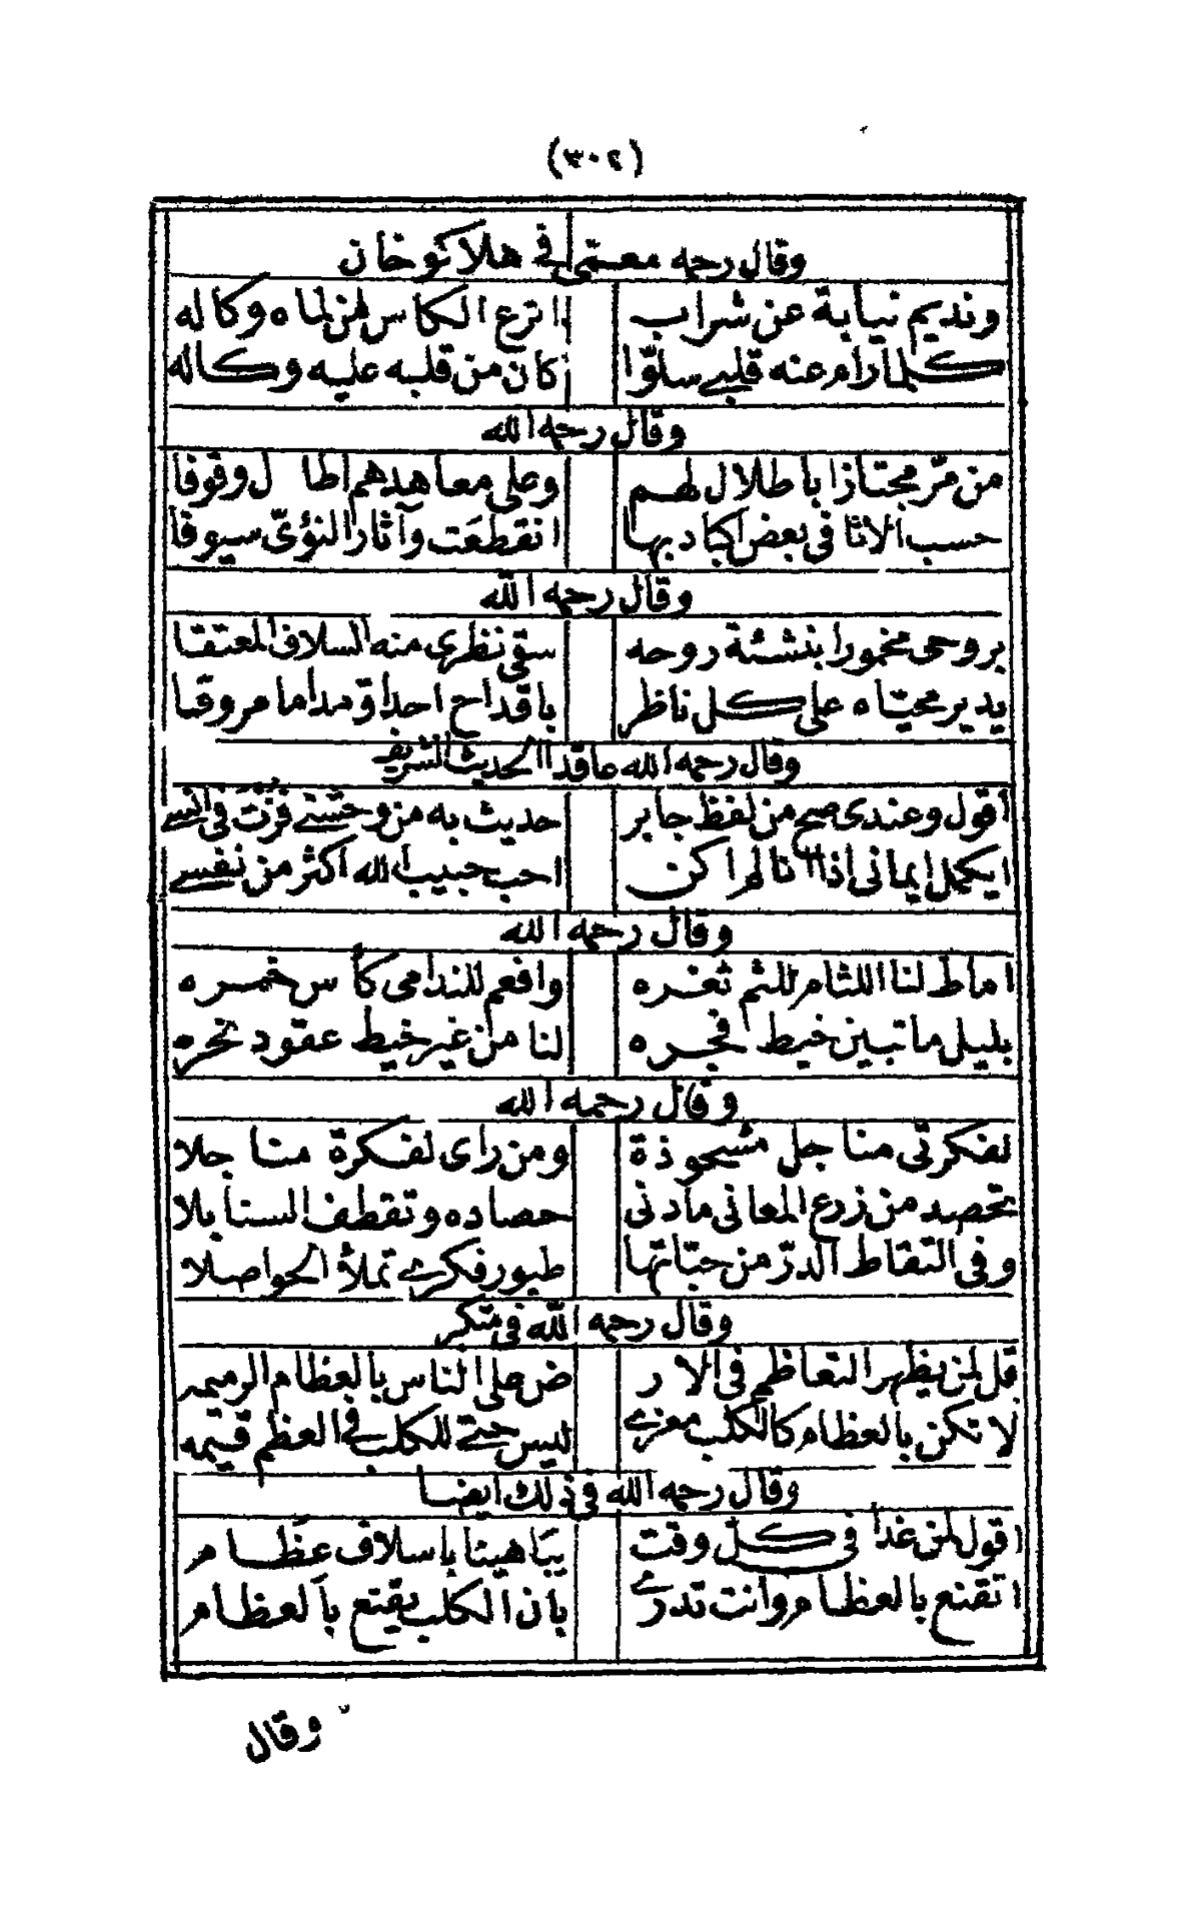 (٣٠٢)
وقال رحمه معمتى في هلاكو خان
ونديم نيابة عن شراب اترع الكاس من لماه وكاله
كلما رام عنه قلبي سلوّا كان من قلبه عليه وكاله
وقال رحمه الله
من مرّ مجتازا باطلال لهم وعلى معاهدهم اطال وقوفا
حسب الاثافي بعض اكباد بها انقطعَت وآثار النؤىّ سيوفا
وقال رحمه الله
بروحى مخمورا بنشئة روحه سقى نظرى منه السلاف المعتقا
يدير محيّاه على كل ناظر باقداح احداق مداما مروقا
وقال رحمه الله عاقدا الحديث الشريف
أقول وعندى صح من لفظ جابر حديث به من وحشتي فزت في انسي
ايكمل ايمانى اذا انا لم اكن احب حبيب الله اكثر من نفسي
وقال رحمه الله
اماط لنا اللثام للثم ثغره وافعم للندامى كاس خمره
بليل ما تبين خيط فجره لنا من غير خيط عقود نحره
وقال رحمه الله
لفكرتى مناجل مشحوذة ومن راى لفكرة مناجلا
تحصد من زرع المعانى مادنى حصاده وتقطف السنابلا
وفى التقاط الدرّ من حبّاتها طيور فكري تملأ الحواصلا
وقال رحمه الله فى متكبر
قل لمن يظهر التعاظم فى الار ض على الناس بالعظام الرميمه
لا تكن بالعظام كالكلب مغرى ليس حتي للكلب في العظم قيمه
وقال رحمه الله فى ذلك ايضا
اقول لمن غدا فى كلّ وقت يباهينا باسلاف عظام
اتقنع بالعظام وانت تدري بان الكلب يقنع بالعظام
وقال